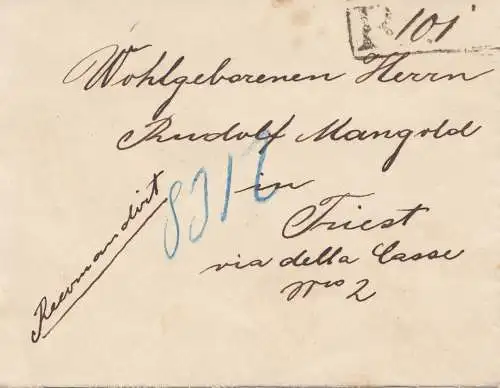 101
Wohlgeborenen Herrn
Rudolf Mangold
in
Triest
via della Casse
Nro 2
Recomandirt